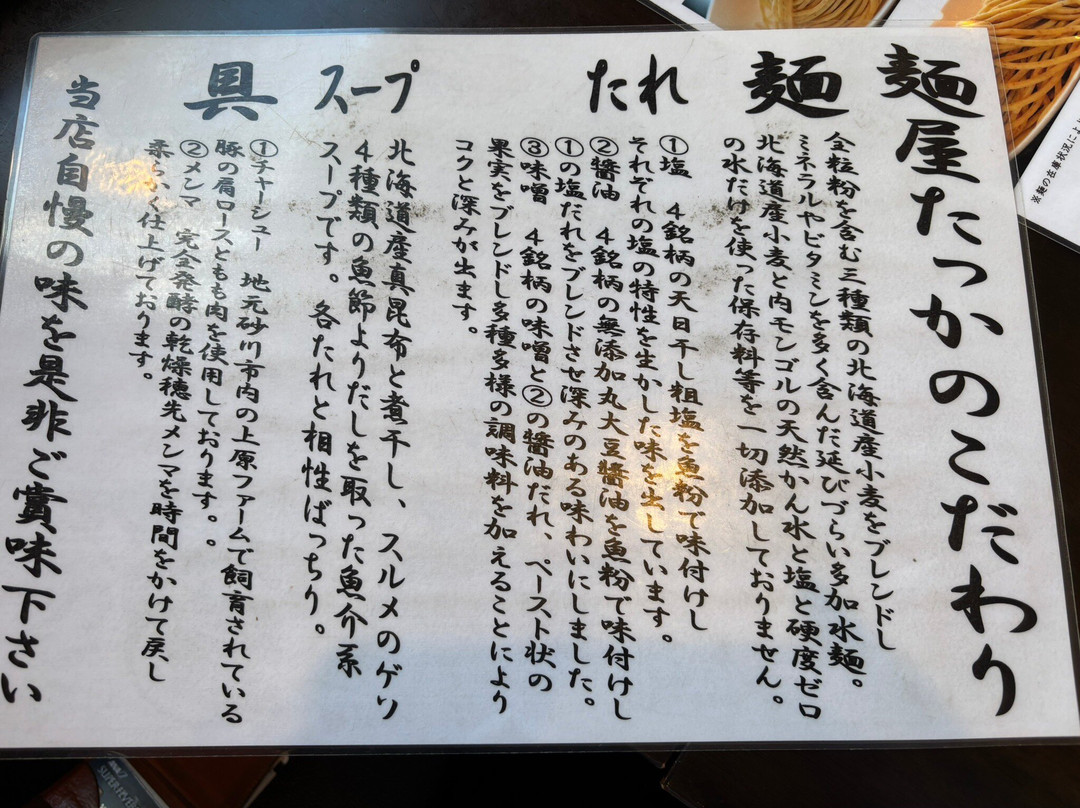 麺屋たっかのこだわり
麺
全粒粉を含む三種類の北海道産小麦をブレンドし
ミネラルやビタミンを多く含んだ延びづらい多加水麺。
北海道産小麦と内モンゴルの天然かん水と塩と硬度ゼロ
の水だけを使った保存料等を一切添加しておりません。
たれ
①塩 4銘柄の天日干し粗塩を魚粉で味付けし
それぞれの塩の特性を生かした味を出しています。
②醬油 4銘柄の無添加丸大豆醬油を魚粉で味付けし
①の塩だれをブレンドさせ深みのある味わいにしました。
③味噌 4銘柄の味噌と②の醬油だれ、ペースト状の
果実をブレンドし多種多様の調味料を加えることにより
コクと深みが出ます。
スープ
北海道産真昆布と煮干し、スルメのゲソ
4種類の魚節よりだしを取った魚介系
スープです。各たれと相性ばっちり。
具
①チャーシュー 地元砂川市内の上原ファームで飼育されている
豚の肩ロースともも肉を使用しております。。
②メンマ 完全発酵の乾燥穂先メンマを時間をかけて戻し
柔らかく仕上げております。
当店自慢の味を是非ご賞味下さい
※麺の在庫状況によ